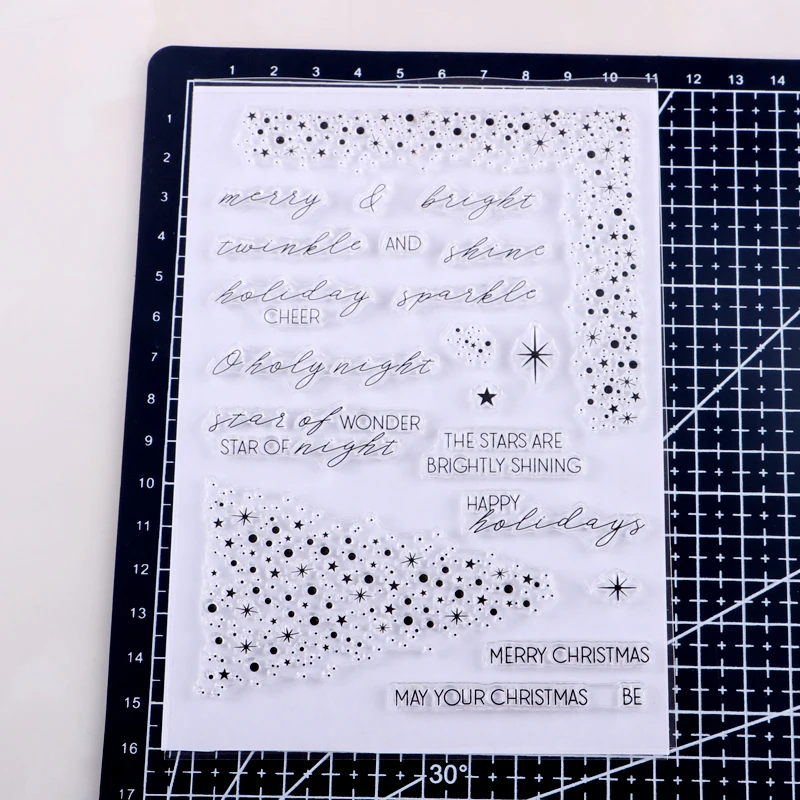 1 2 3 4 5 6 7 8 9 10 11 12 13 14
1
2
3
4
5
6
7
8
9
10
11
12
13
14
15
16
17
merry & bright
twinkle AND shine
holiday sparkle
CHEER
O holy night
star of WONDER
STAR OF night
THE STARS ARE
BRIGHTLY SHINING
HAPPY
holidays
MERRY CHRISTMAS
MAY YOUR CHRISTMAS BE
30°